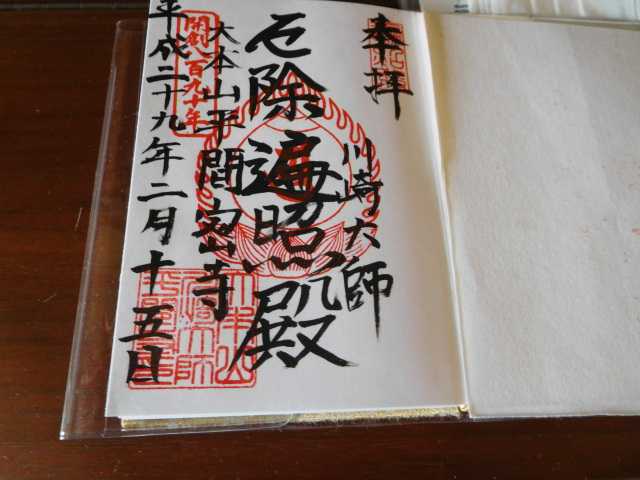 奉拝
川崎大師
厄除遍照殿
大本山平間寺
開創八百九十年
平成二十九年二月十五日